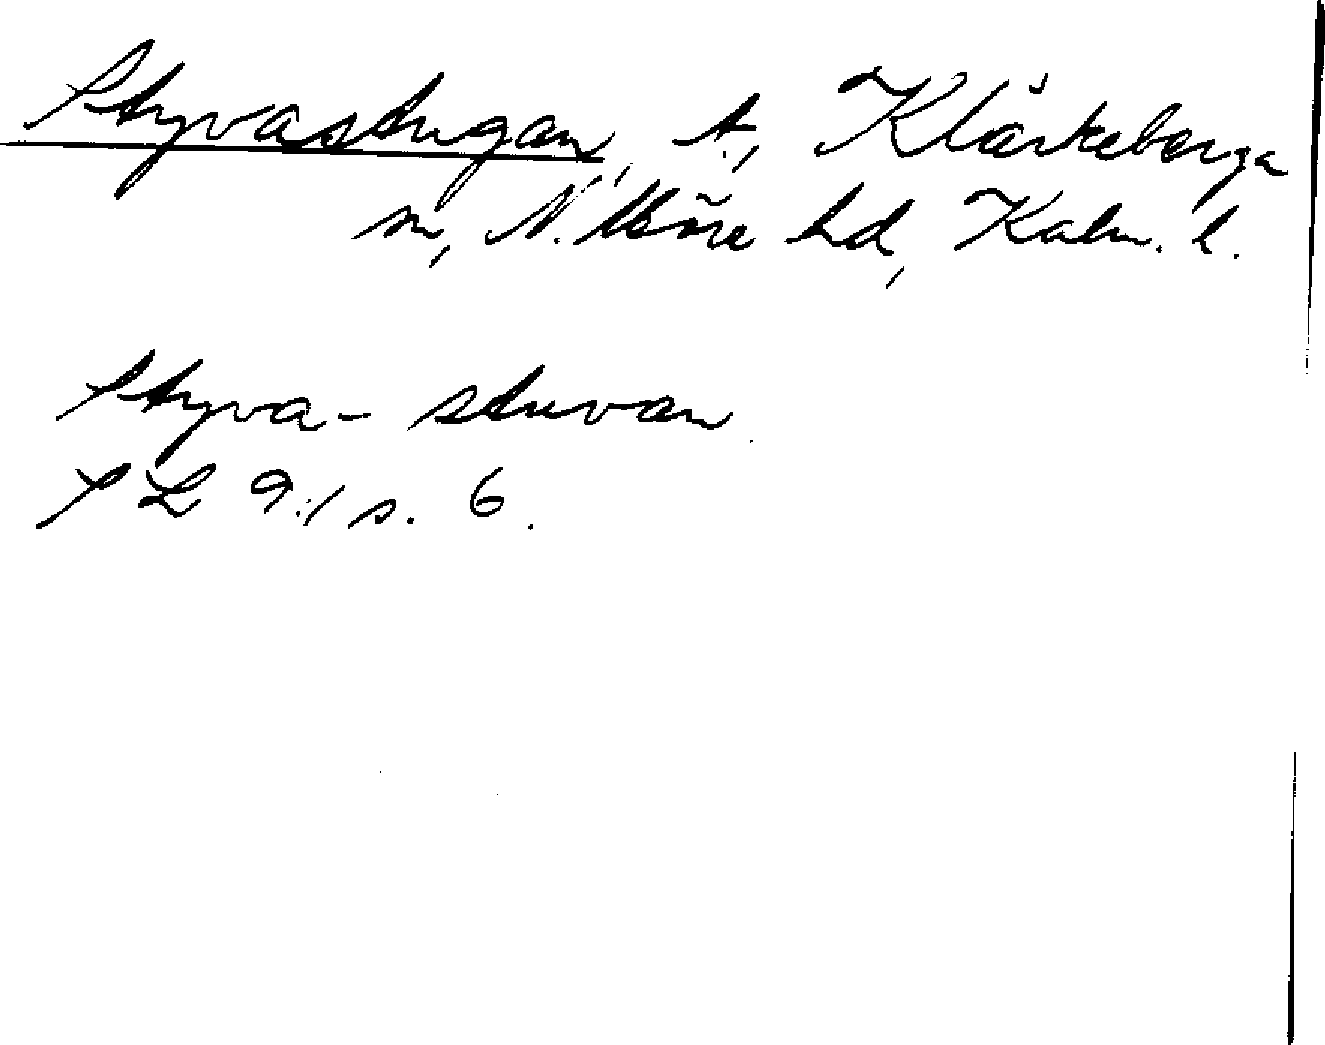 Styvastugan, t., Kläckeberga
sn, N. Möre hd, Kalm. l.
Styva- stuvan
SL 9:1 s. 6.